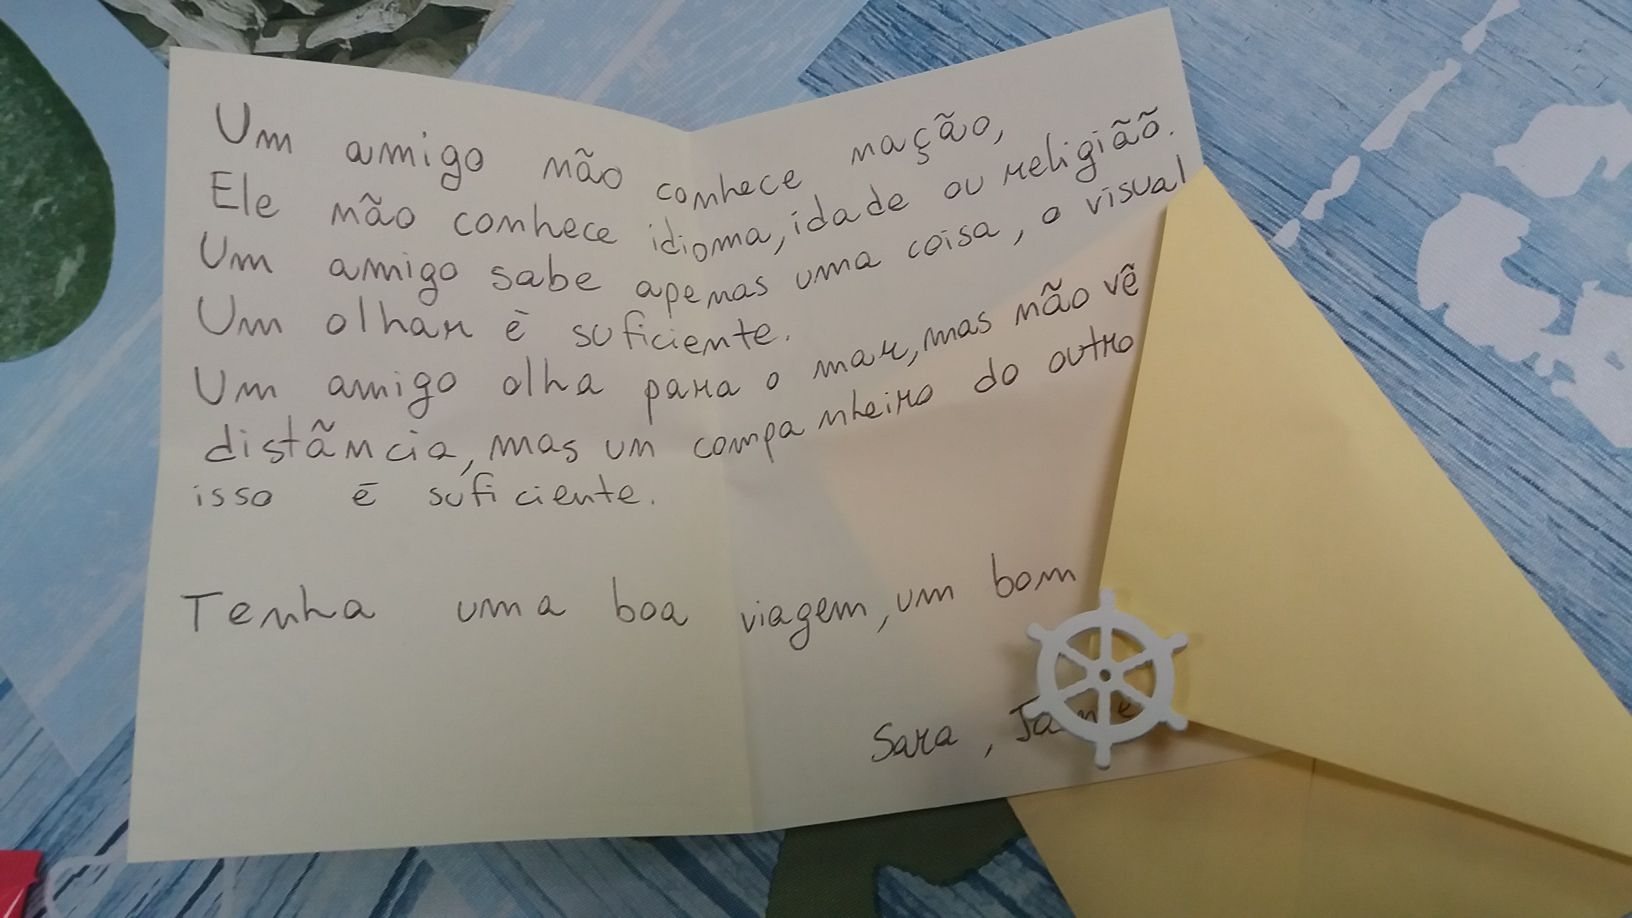 Um amigo não conhece nação,
Ele não conhece idioma, idade ou religião.
Um amigo sabe apenas uma coisa, o visual
Um olhar é suficiente.
Um amigo olha para o mar, mas não vê
distância, mas um companheiro do outro
isso é suficiente.
Tenha uma boa viagem, um bom
Sara,